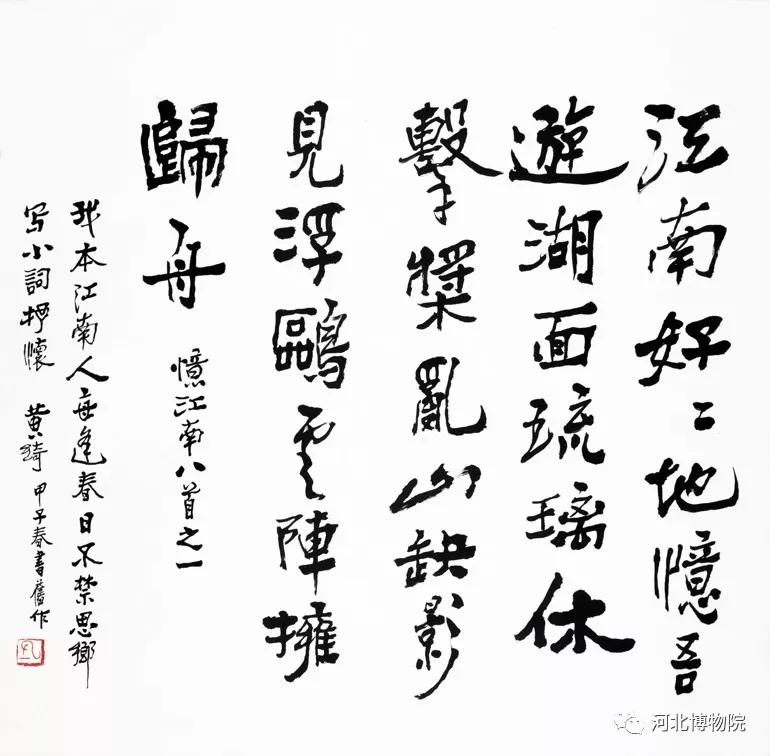 江南好〻地憶吾
遊湖面琉璃休
擊槳亂山缺影
見浮鷗雲陣擁
歸舟
憶江南八首之一
我本江南人每逢春日不禁思鄉
写小詞抒懷 黄綺 甲子春書舊作
河北博物院